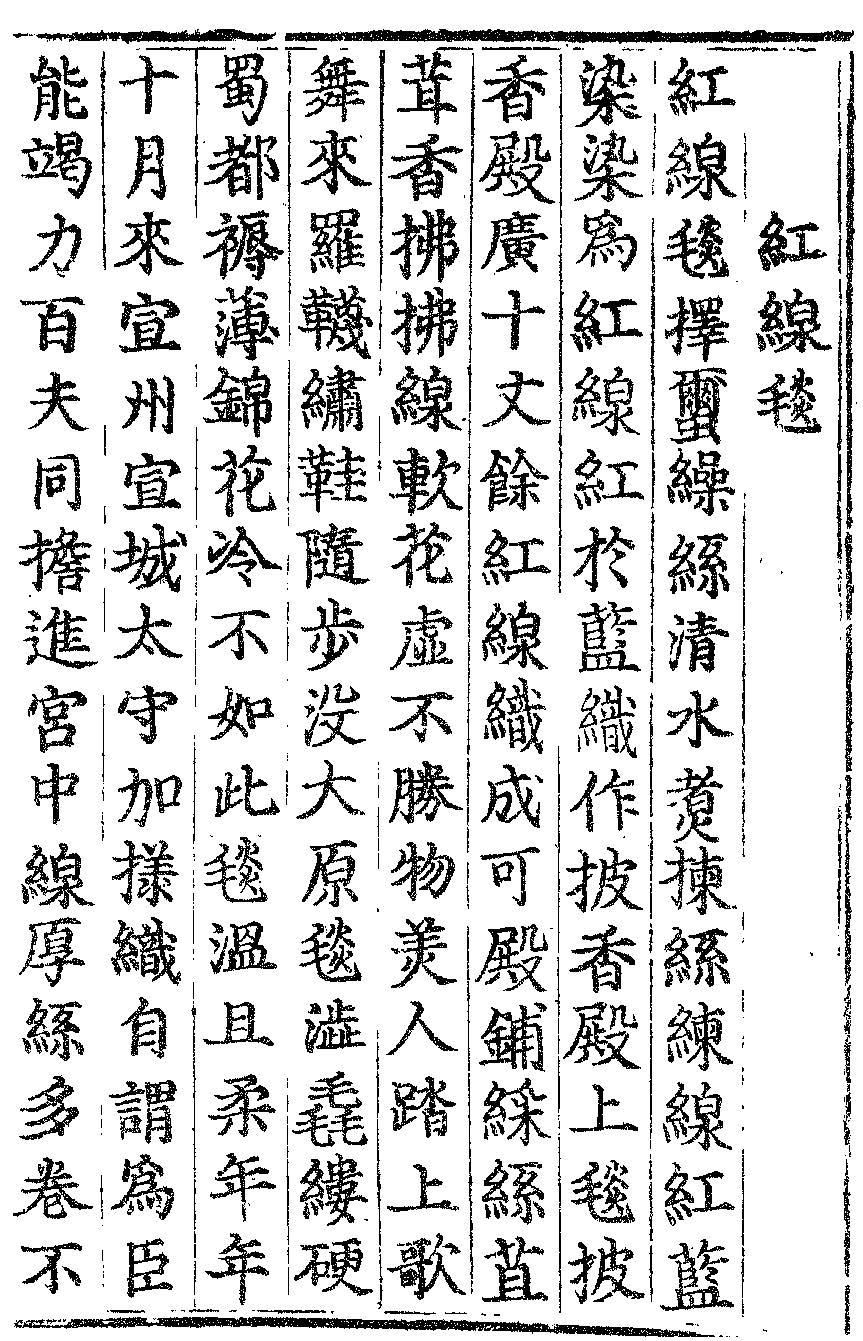 紅線毯
紅線毯擇蠒繰絲清水煑揀絲練線紅藍
染染爲紅線紅於藍織作披香殿上毯披
香殿廣十丈餘紅線織成可殿鋪綵絲苴
茸香拂拂線軟花虛不勝物美人踏上歌
舞來羅韈繡鞋隨步没大原毯澁毳縷硬
蜀都褥薄錦花冷不如此毯溫且柔年年
十月來宣州宣城太守加樣織自謂爲臣
能竭力百夫同擔進宮中線厚絲多卷不